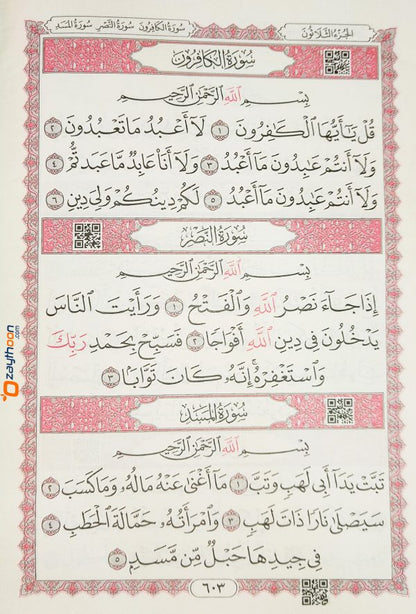 سُورَةُ الكَافِرُونَ سُورَةُ النَّصْرِ سُورَةُ المَسَدِ الجُزْءُ الثَّلَاثُونَ
سُورَةُ الكَافِرُونَ
بِسْمِ اللَّهِ الرَّحْمَٰنِ الرَّحِيمِ
قُلْ يَٰٓأَيُّهَا ٱلْكَٰفِرُونَ ١ لَآ أَعْبُدُ مَا تَعْبُدُونَ ٢
وَلَآ أَنتُمْ عَٰبِدُونَ مَآ أَعْبُدُ ٣ وَلَآ أَنَا۠ عَابِدٌ مَّا عَبَدتُّمْ ٤
وَلَآ أَنتُمْ عَٰبِدُونَ مَآ أَعْبُدُ ٥ لَكُمْ دِينُكُمْ وَلِىَ دِينِ ٦
سُورَةُ النَّصْرِ
بِسْمِ اللَّهِ الرَّحْمَٰنِ الرَّحِيمِ
إِذَا جَآءَ نَصْرُ ٱللَّهِ وَٱلْفَتْحُ ١ وَرَأَيْتَ ٱلنَّاسَ
يَدْخُلُونَ فِى دِينِ ٱللَّهِ أَفْوَاجًا ٢ فَسَبِّحْ بِحَمْدِ رَبِّكَ
وَٱسْتَغْفِرْهُ ۚ إِنَّهُۥ كَانَ تَوَّابًۢا ٣
سُورَةُ المَسَدِ
بِسْمِ اللَّهِ الرَّحْمَٰنِ الرَّحِيمِ
تَبَّتْ يَدَآ أَبِى لَهَبٍ وَتَبَّ ١ مَآ أَغْنَىٰ عَنْهُ مَالُهُۥ وَمَا كَسَبَ ٢
سَيَصْلَىٰ نَارًا ذَاتَ لَهَبٍ ٣ وَٱمْرَأَتُهُۥ حَمَّالَةَ ٱلْحَطَبِ ٤
فِى جِيدِهَا حَبْلٌ مِّن مَّسَدٍۭ ٥
٦٠٣
zaythoon.com